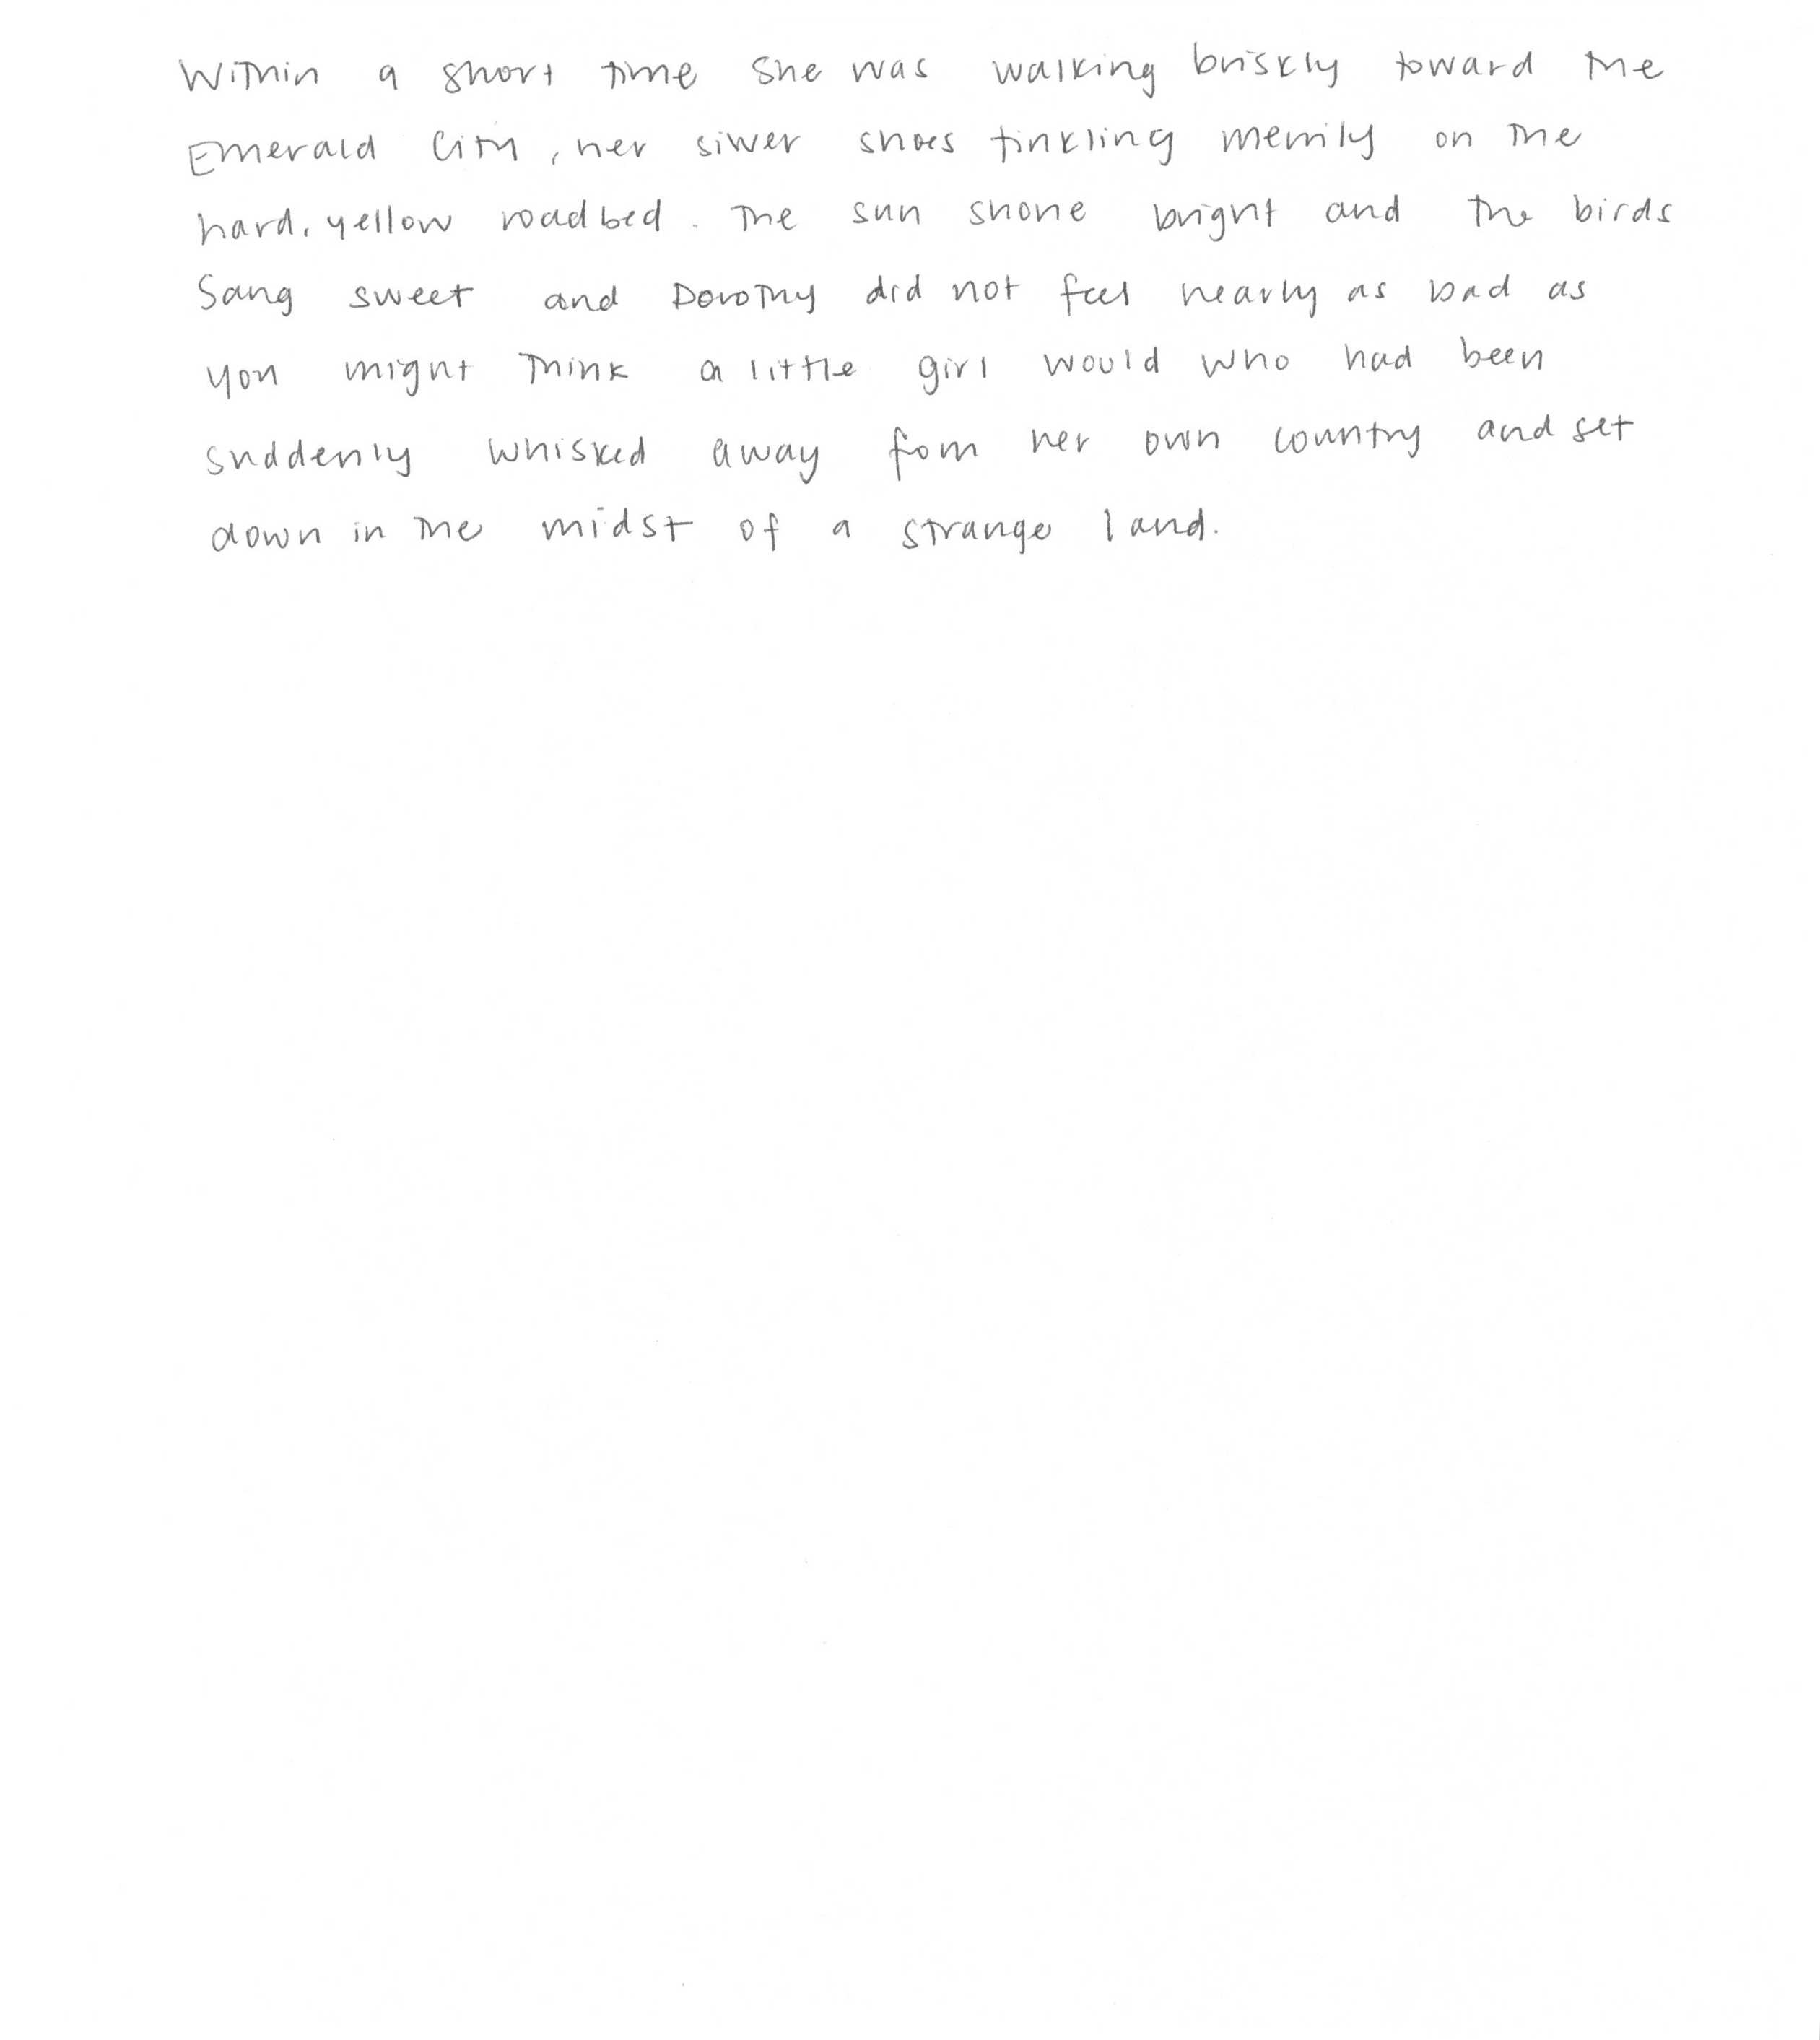 Within a short time she was walking briskly toward the
Emerald City, her silver shoes tinkling merrily on the
hard, yellow roadbed. The sun shone bright and the birds
Sang sweet and Dorothy did not feel nearly as bad as
you might think a little girl would who had been
suddenly whisked away from her own country and set
down in the midst of a strange land.